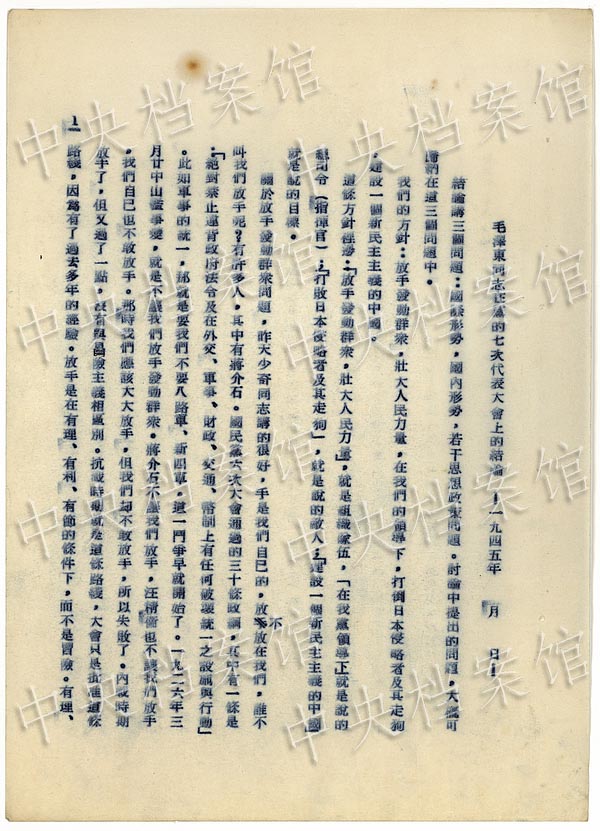 毛澤東同志在黨的七次代表大會上的結論——一九四五年 月 日——
結論講三個問題:國際形勢,國內形勢,若干思想政策問題。討論中提出的問題,大概可
歸納在這三個問題中。
我們的方針:放手發動群衆,壯大人民力量,在我們的領導下,打倒日本侵略者及其走狗
,建設一個新民主主義的中國。
這條方針裡邊:「放手發動群衆,壯大人民力量」,就是組織隊伍,「在我黨領導下」就是說的
總司令(指揮官),「打敗日本侵略者及其走狗」,就是說的敵人,「建設一個新民主主義的中國」
就是說的目標。
關於放手發動群衆問題,昨天少奇同志講的很好,手是我們自己的,放不放在我們,誰不
叫我們放手呢?有許多人,其中有蔣介石。國民黨六次大會通過的三十條政綱,其中有一條是
:「絕對禁止違背政府法令及在外交、軍事、財政、交通、幣制上有任何破壞統一之設施與行動」
。此如軍事的統一,那就是要我們不要八路軍、新四軍,這一鬥爭早就開始了。一九二六年三
月廿中山艦事變,就是不讓我們放手發動群衆。蔣介石不讓我們放手,汪精衛也不讓我們放手
,我們自己也不敢放手。那時我們應該大大放手,但我們却不敢放手,所以失敗了。內戰時期
放手了,但又過了一點,沒有與冒險主義相區別。抗戰時期就是這條路綫,大會只是批准這條
路綫,因為有了過去多年的經驗。放手是在有理、有利、有節的條件下,而不是冒險。有理、
1
中央档案馆
中央档案馆
中央档案馆
中央档案馆
中央档案馆
中央档案馆